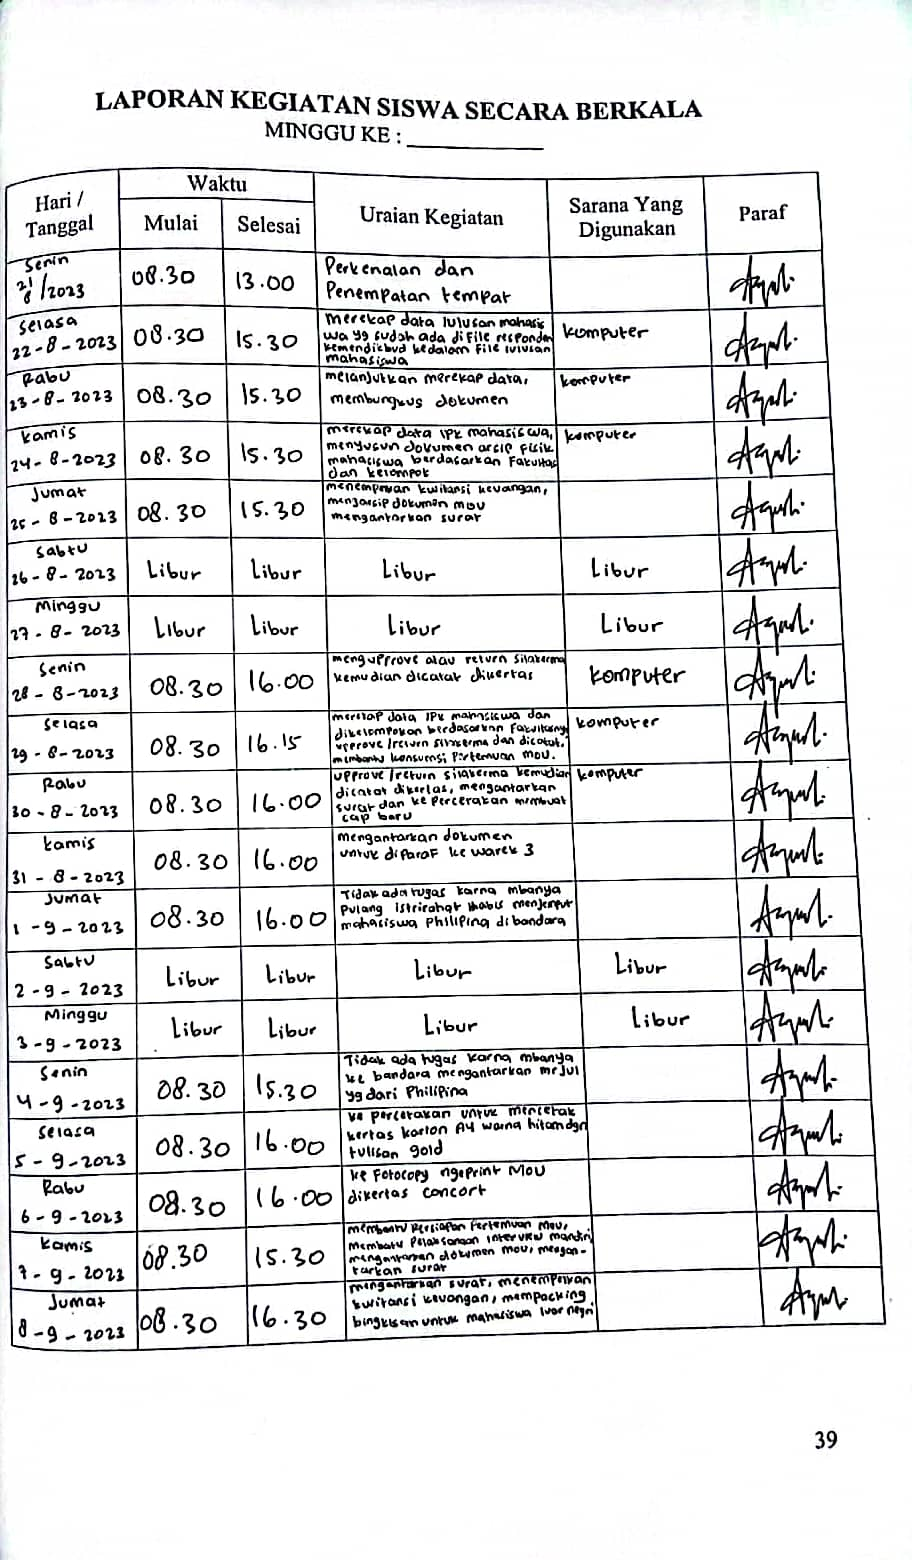 LAPORAN KEGIATAN SISWA SECARA BERKALA
MINGGU KE :
Hari / Tanggal
Waktu
Mulai
Selesai
Uraian Kegiatan
Sarana Yang Digunakan
Paraf
Senin
21/8/2023
08.30
13.00
Perkenalan dan
Penempatan tempat
Selasa
22-8-2023
08.30
15.30
Merekap data lulusan mahasis
wa yg sudah ada di file responden
kemendikbud kedalam file lulusan
mahasiswa
komputer
Rabu
23-8-2023
08.30
15.30
melanjutkan merekap data,
membungkus dokumen
komputer
Kamis
24-8-2023
08.30
15.30
merekap data IPK mahasiswa,
menyusun dokumen arsip fisik
mahasiswa berdasarkan Fakultas
dan kelompok
komputer
Jumat
25-8-2023
08.30
15.30
menempelkan kwitansi keuangan,
mengarsip dokumen mou
mengantarkan surat
Sabtu
26-8-2023
Libur
Libur
Libur
Libur
Minggu
27-8-2023
Libur
Libur
Libur
Libur
Senin
28-8-2023
08.30
16.00
mengupprove atau return silakerma
kemudian dicatat dikertas
komputer
Selasa
29-8-2023
08.30
16.15
merekap data IPK mahasiswa dan
dikelompokan berdasarkan Fakultasny
upprove /return silakerma dan dicatat,
membantu konsumsi Pertemuan mou.
komputer
Rabu
30-8-2023
08.30
16.00
upprove /return silakerma kemudian
dicatat dikertas, mengantarkan
surat dan ke percetakan membuat
cap baru
komputer
Kamis
31-8-2023
08.30
16.00
mengantarkan dokumen
untuk diparaf ke warek 3
Jumat
1-9-2023
08.30
16.00
Tidak ada tugas karna mbanya
pulang istrirahat habis menjemput
mahasiswa Philiping di bandara
Sabtu
2-9-2023
Libur
Libur
Libur
Libur
Minggu
3-9-2023
Libur
Libur
Libur
Libur
Senin
4-9-2023
08.30
15.30
Tidak ada tugas karna mbanya
ke bandara mengantarkan mr Jul
yg dari Philipina
Selasa
5-9-2023
08.30
16.00
ke percetakan untuk mencetak
kertas karton A4 warna hitam dgn
tulisan gold
Rabu
6-9-2023
08.30
16.00
ke Fotocopy ngeprint MoU
dikertas concort
Kamis
7-9-2023
08.30
15.30
membantu persiapan Pertemuan mou,
membatu pelaksanaan interview mandiri
mengantarkan dokumen mou, mengan-
tarkan surat
Jumat
8-9-2023
08.30
16.30
mengantarkan surat, menempelkan
kwitansi keuangan, mempacking
bingkisan untuk mahasiswa luar negri
39